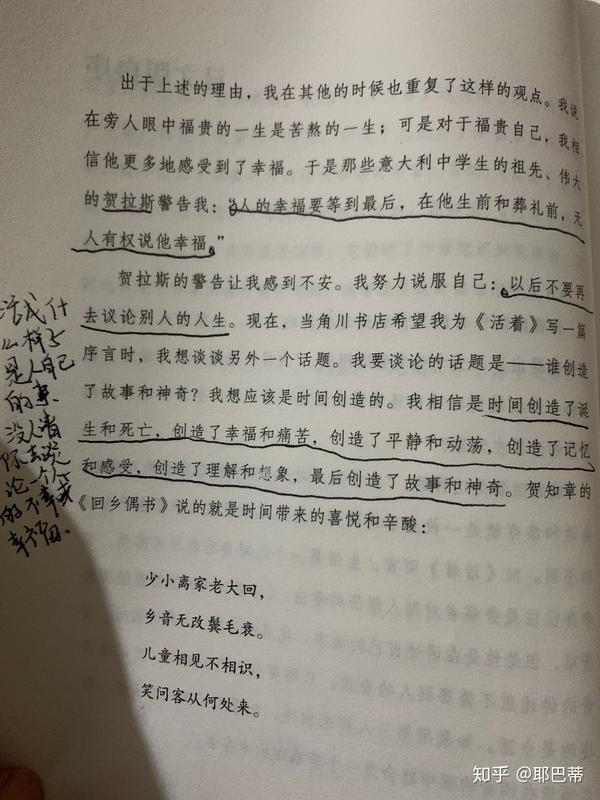 出于上述的理由，我在其他的时候也重复了这样的观点。我说
在旁人眼中福贵的一生是苦熬的一生；可是对于福贵自己，我相
信他更多地感受到了幸福。于是那些意大利中学生的祖先、伟大
的贺拉斯警告我：“人的幸福要等到最后，在他生前和葬礼前，无
人有权说他幸福。”
贺拉斯的警告让我感到不安。我努力说服自己：以后不要再
去议论别人的人生。现在，当角川书店希望我为《活着》写一篇
序言时，我想谈谈另外一个话题。我要谈论的话题是——谁创造
了故事和神奇？我想应该是时间创造的。我相信是时间创造了诞
生和死亡，创造了幸福和痛苦，创造了平静和动荡，创造了记忆
和感受，创造了理解和想象，最后创造了故事和神奇。贺知章的
《回乡偶书》说的就是时间带来的喜悦和辛酸：
少小离家老大回，
乡音无改鬓毛衰。
儿童相见不相识，
笑问客从何处来。
活成什
么样子
是人自己
的事、
没人请
你去谈
论一个人
不幸或
幸福、
知乎 @耶巴蒂